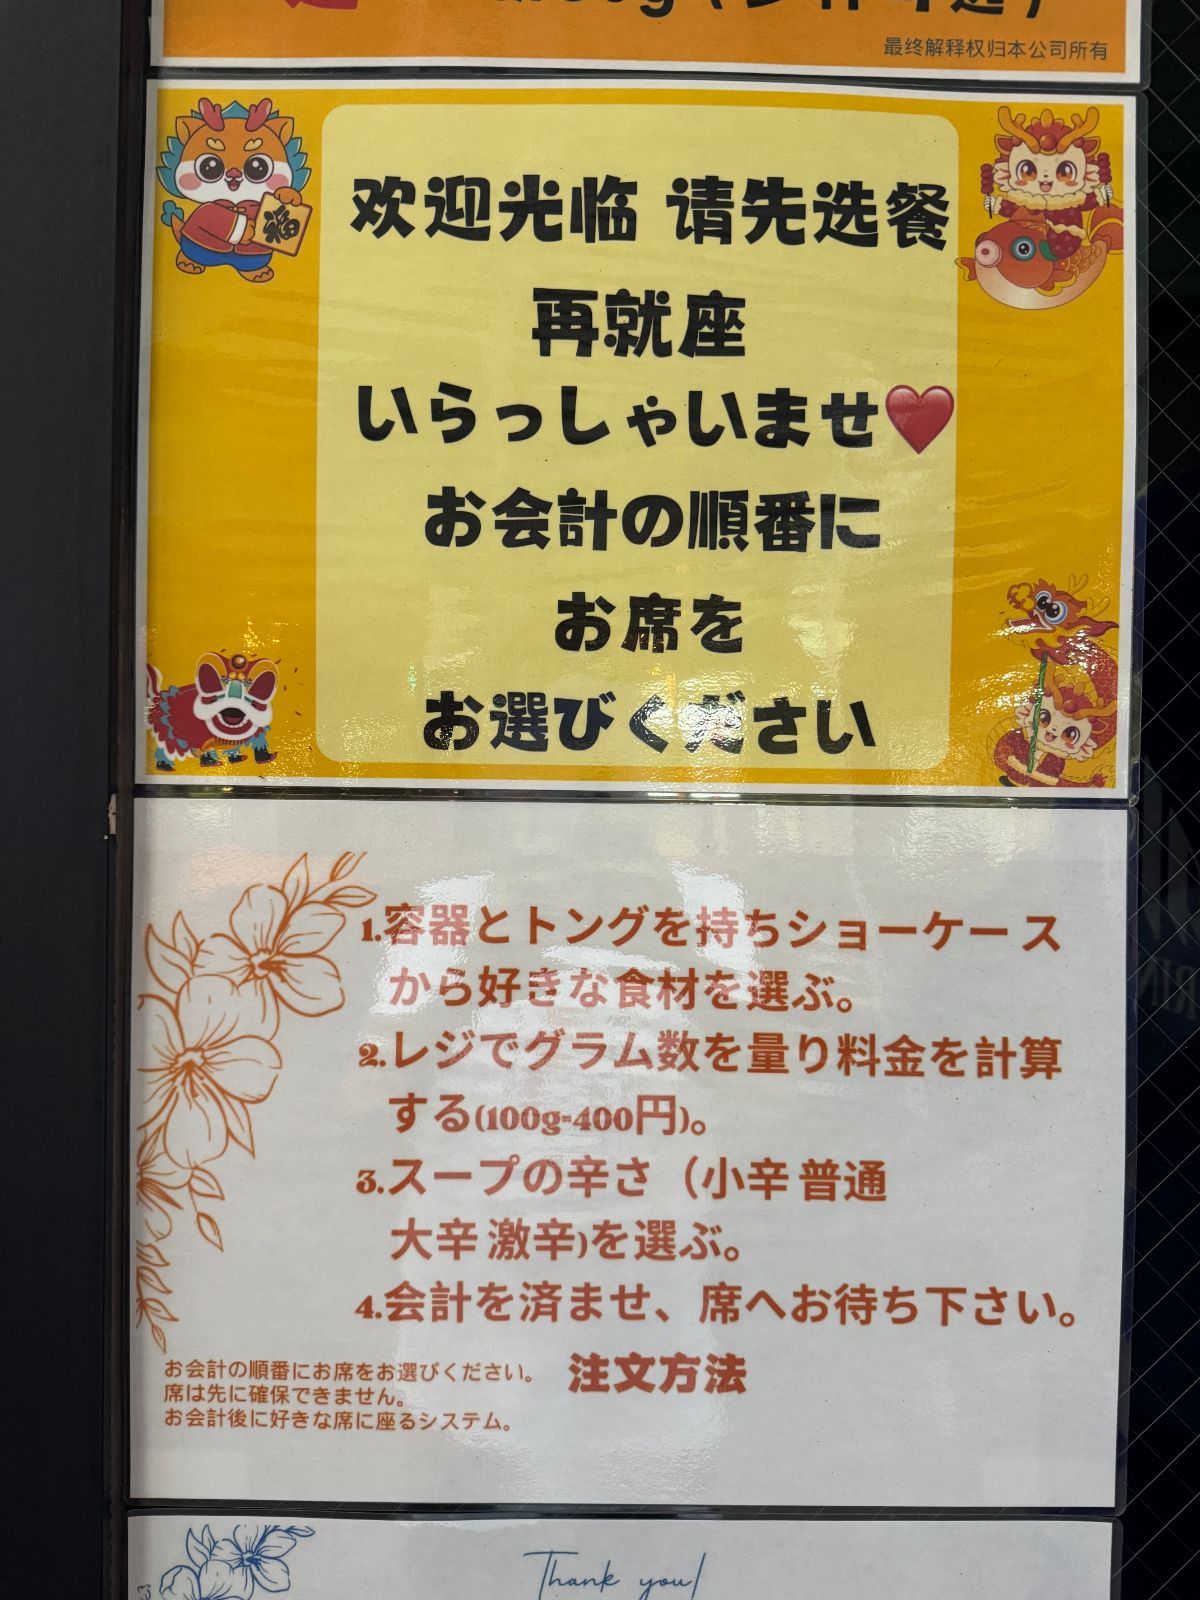 最终解释权归本公司所有
欢迎光临 请先选餐
再就座
いらっしゃいませ❤️
お会計の順番に
お席を
お選びください
福
1.容器とトングを持ちショーケース
から好きな食材を選ぶ。
2.レジでグラム数を量り料金を計算
する(100g=400円)。
3.スープの辛さ（小辛 普通
大辛 激辛)を選ぶ。
4.会計を済ませ、席へお待ち下さい。
注文方法
お会計の順番にお席をお選びください。
席は先に確保できません。
お会計後に好きな席に座るシステム。
Thank you!